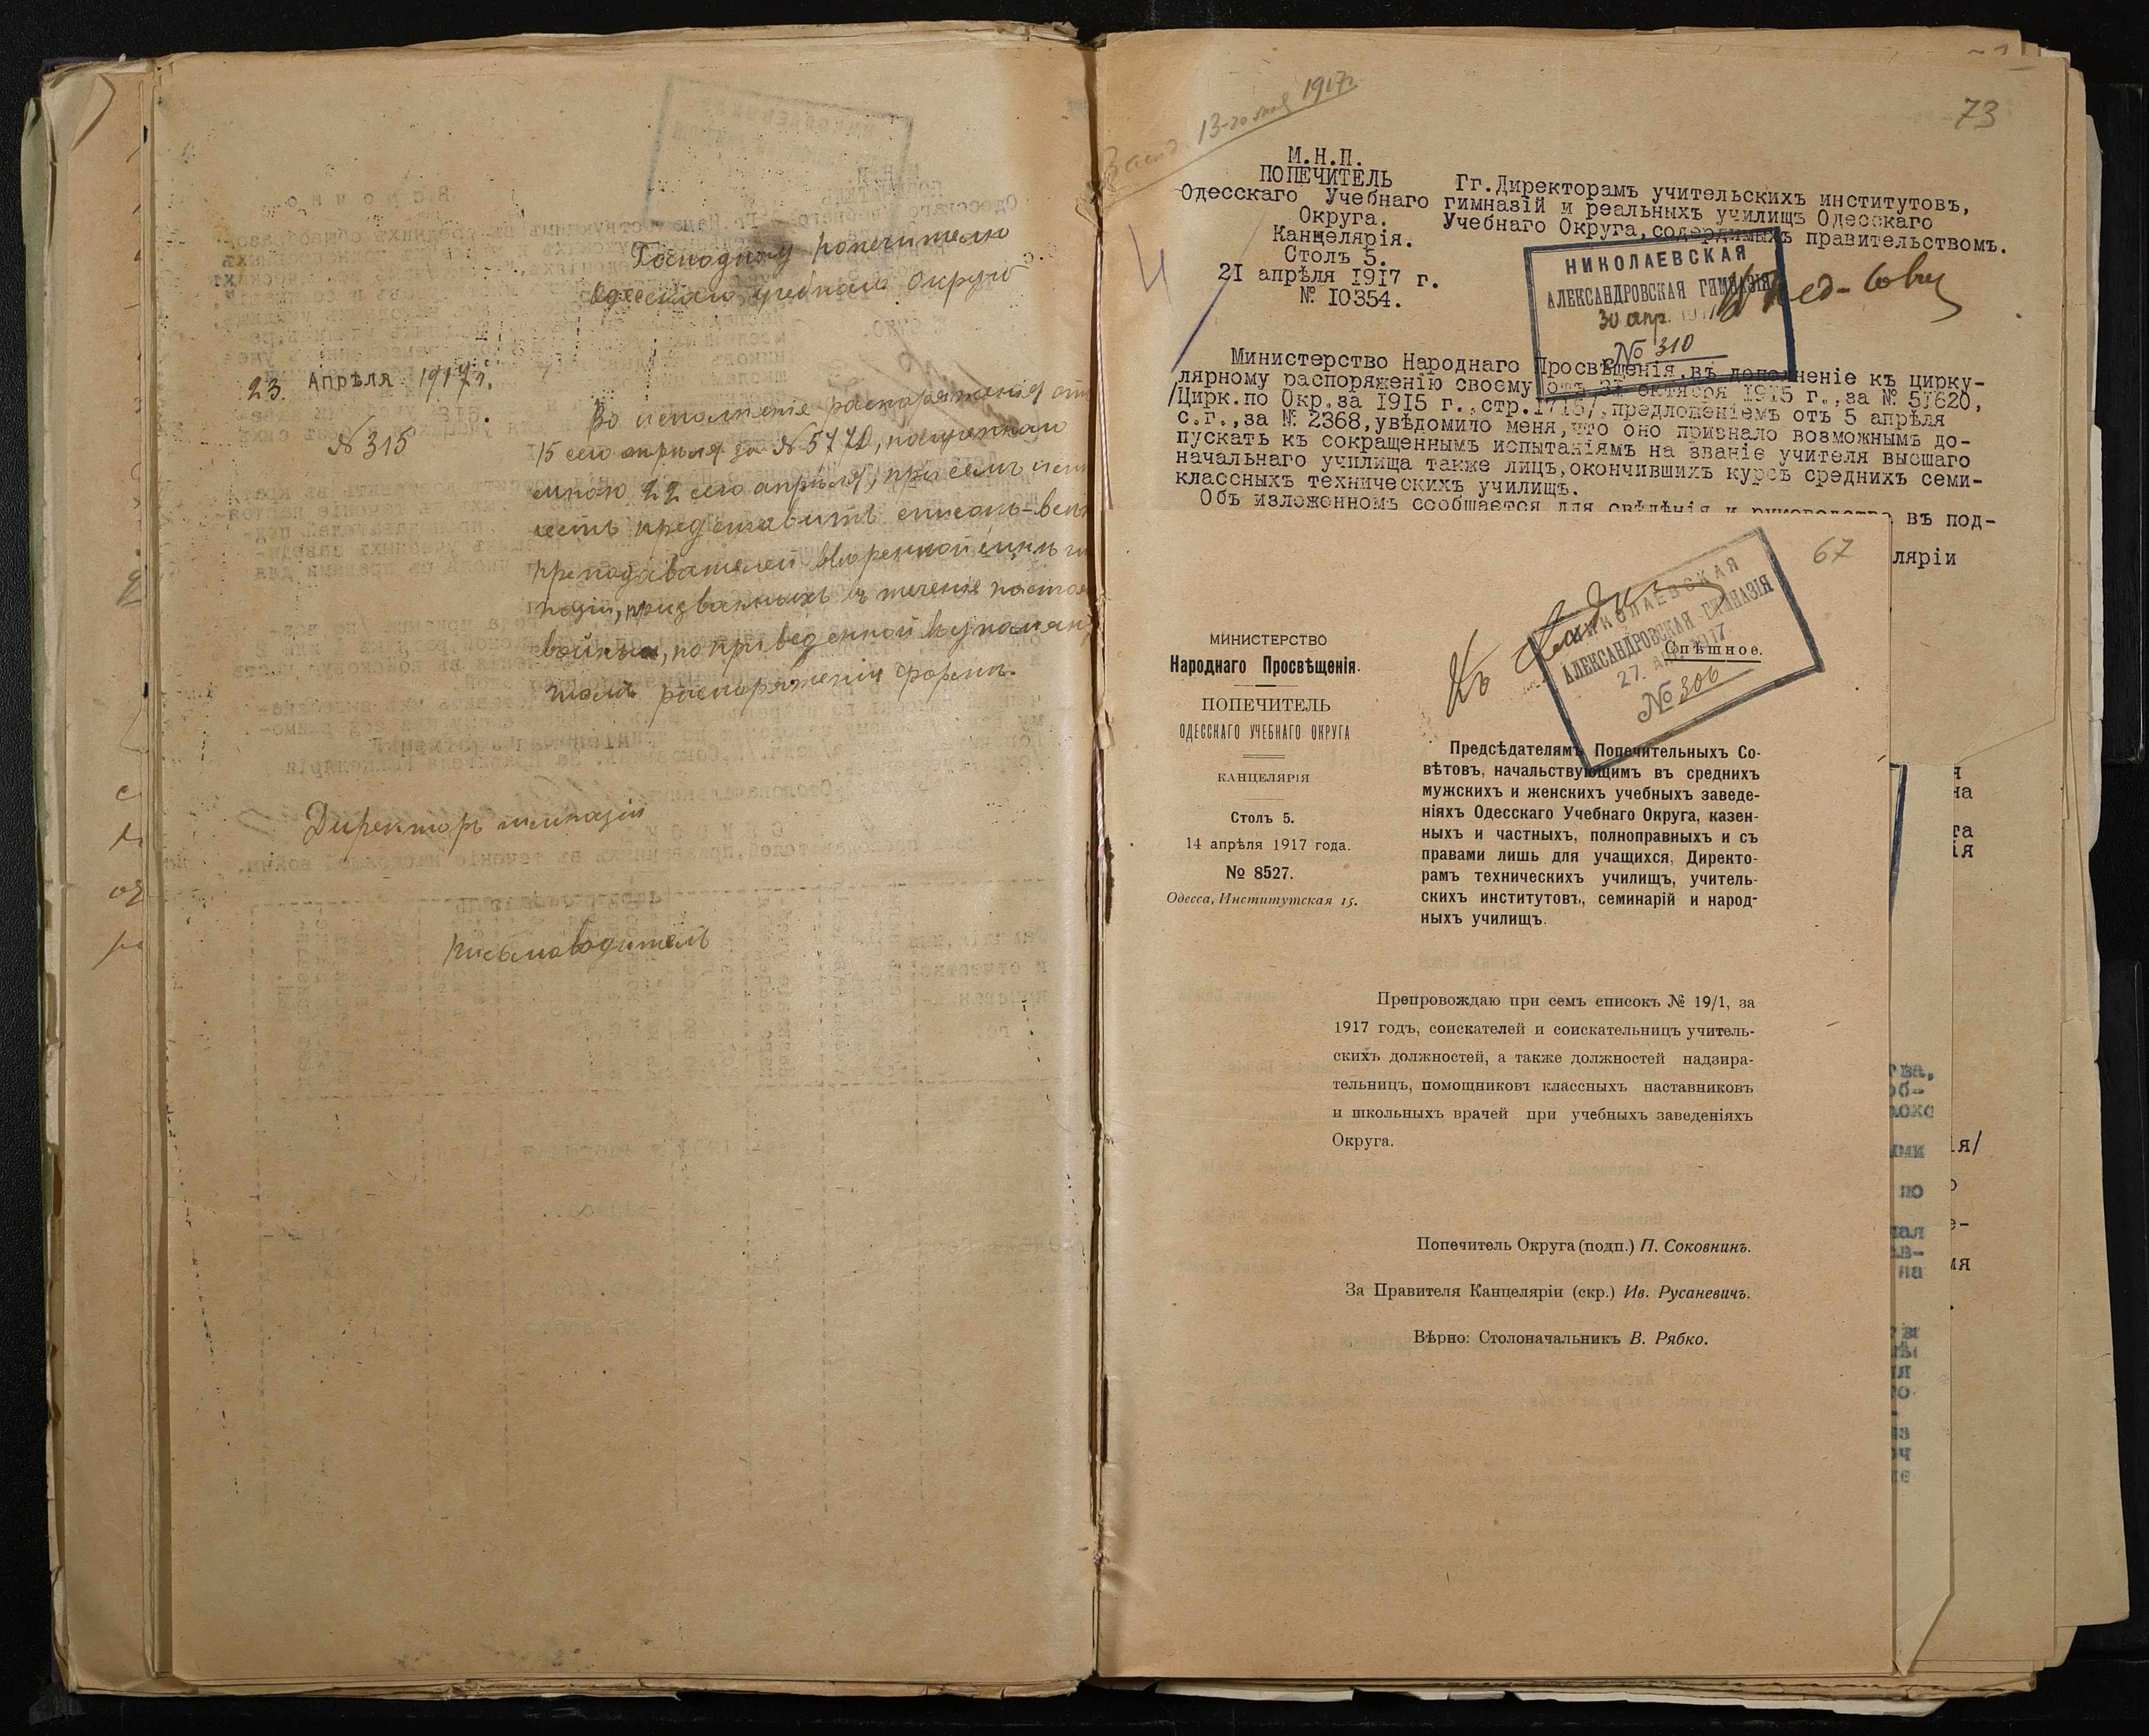 Господину Попечителю
Одесскаго Учебнаго Округа
23 Апрѣля 1917 г.
№ 315
Во исполненіе распоряженія отъ
15 сего апрѣля за № 5772, полученнаго
мною 22 сего апрѣля, при семъ имѣю
честь представить списокъ
преподавателей ввѣренной мнѣ
назіи, призванныхъ въ теченіе
войны, по приведенной въ
томъ распоряженіи формѣ.
Директоръ гимназіи
Письмоводитель
13-го мая 1917 г.
73
М.Н.П.
ПОПЕЧИТЕЛЬ
Одесскаго Учебнаго
Округа.
Канцелярія.
Столъ 5.
21 апрѣля 1917 г.
№ 10354.
Гг.Директорамъ учительскихъ институтовъ,
гимназій и реальныхъ училищъ Одесскаго
Учебнаго Округа,содержимыхъ правительствомъ.
НИКОЛАЕВСКАЯ
АЛЕКСАНДРОВСКАЯ ГИМНАЗІЯ
30 апр. 1917
№ 310
Министерство Народнаго Просвѣщенія,въ дополненіе къ цирку-
лярному распоряженію своему отъ 31 октября 1915 г.,за № 51620,
/Цирк.по Окр.за 1915 г.,стр.1716/,предложеніемъ отъ 5 апрѣля
с.г.,за № 2368,увѣдомило меня,что оно признало возможнымъ до-
пускать къ сокращеннымъ испытаніямъ на званіе учителя высшаго
начальнаго училища также лицъ,окончившихъ курсъ средних семи-
классныхъ техническихъ училищъ.
Объ изложенномъ сообщается для свѣдѣнія и руководства въ под-
ляріи
67
НИКОЛАЕВСКАЯ
АЛЕКСАНДРОВСКАЯ ГИМНАЗІЯ
27. АПР. 1917
№ 306
Спѣшное.
МИНИСТЕРСТВО
Народнаго Просвѣщенія.
ПОПЕЧИТЕЛЬ
ОДЕССКАГО УЧЕБНАГО ОКРУГА
КАНЦЕЛЯРІЯ
Столъ 5.
14 апрѣля 1917 года.
№ 8527.
Одесса, Институтская 15.
Предсѣдателямъ Попечительныхъ Со-
вѣтовъ, начальствующимъ въ среднихъ
мужскихъ и женскихъ учебныхъ заведе-
ніяхъ Одесскаго Учебнаго Округа, казен-
ныхъ и частныхъ, полноправныхъ и съ
правами лишь для учащихся, Директо-
рамъ техническихъ училищъ, учитель-
скихъ институтовъ, семинарій и народ-
ныхъ училищъ.
Препровождаю при семъ списокъ № 19/1, за
1917 годъ, соискателей и соискательницъ учитель-
скихъ должностей, а также должностей надзира-
тельницъ, помощниковъ классныхъ наставниковъ
и школьныхъ врачей при учебныхъ заведеніяхъ
Округа.
Попечитель Округа (подп.) П. Соковнинъ.
За Правителя Канцеляріи (скр.) Ив. Русаневичъ.
Вѣрно: Столоначальникъ В. Рябко.